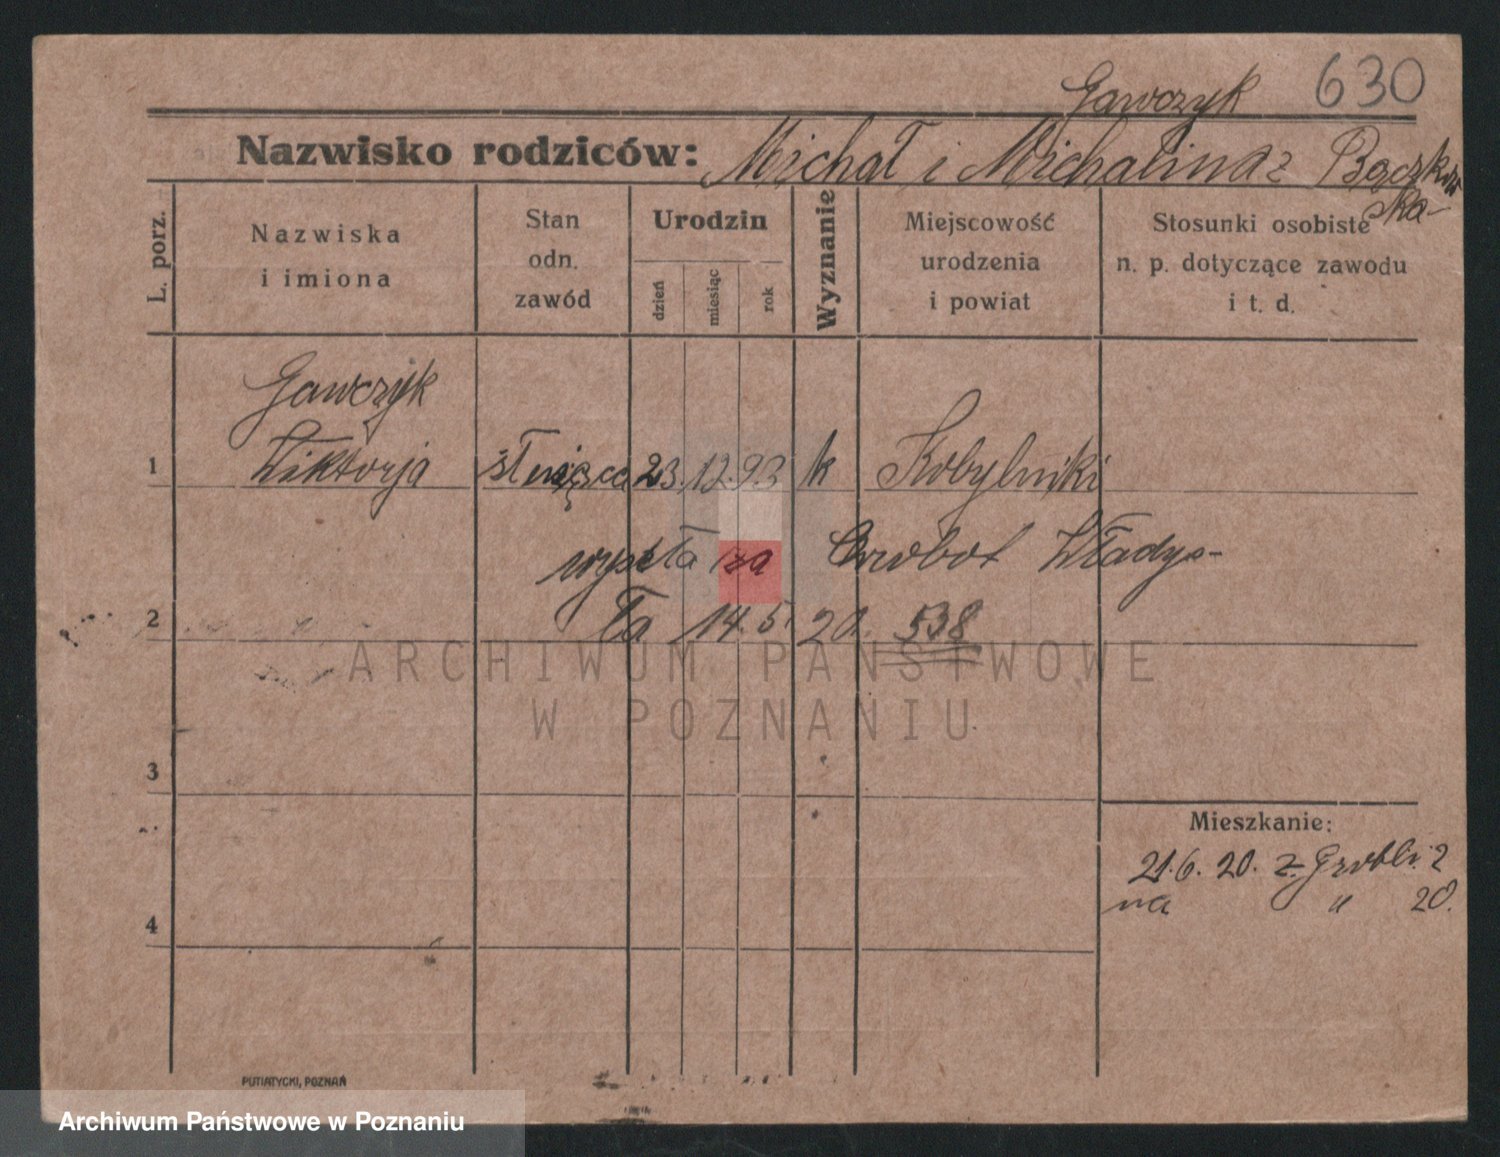 630
Gawczyk
Nazwisko rodziców: Michał i Michalina z Bączkow
ska-
L. porz.
Nazwiska
i imiona
Stan
odn.
zawód
Urodzin
dzień
miesiąc
rok
Wyznanie
Miejscowość
urodzenia
i powiat
Stosunki osobiste
n. p. dotyczące zawodu
i t. d.
Gawczyk
1 Wiktorja służąca 23. 12. 93 k Kobylniki
wyszła za Władys-
2 ła 14. 5. 20. 538
ARCHIWUM PAŃSTWOWE
W POZNANIU
3
Mieszkanie:
21. 6. 20. z. Grobli 2
na " 20.
4
PUTIATYCKI, POZNAŃ
Archiwum Państwowe w Poznaniu